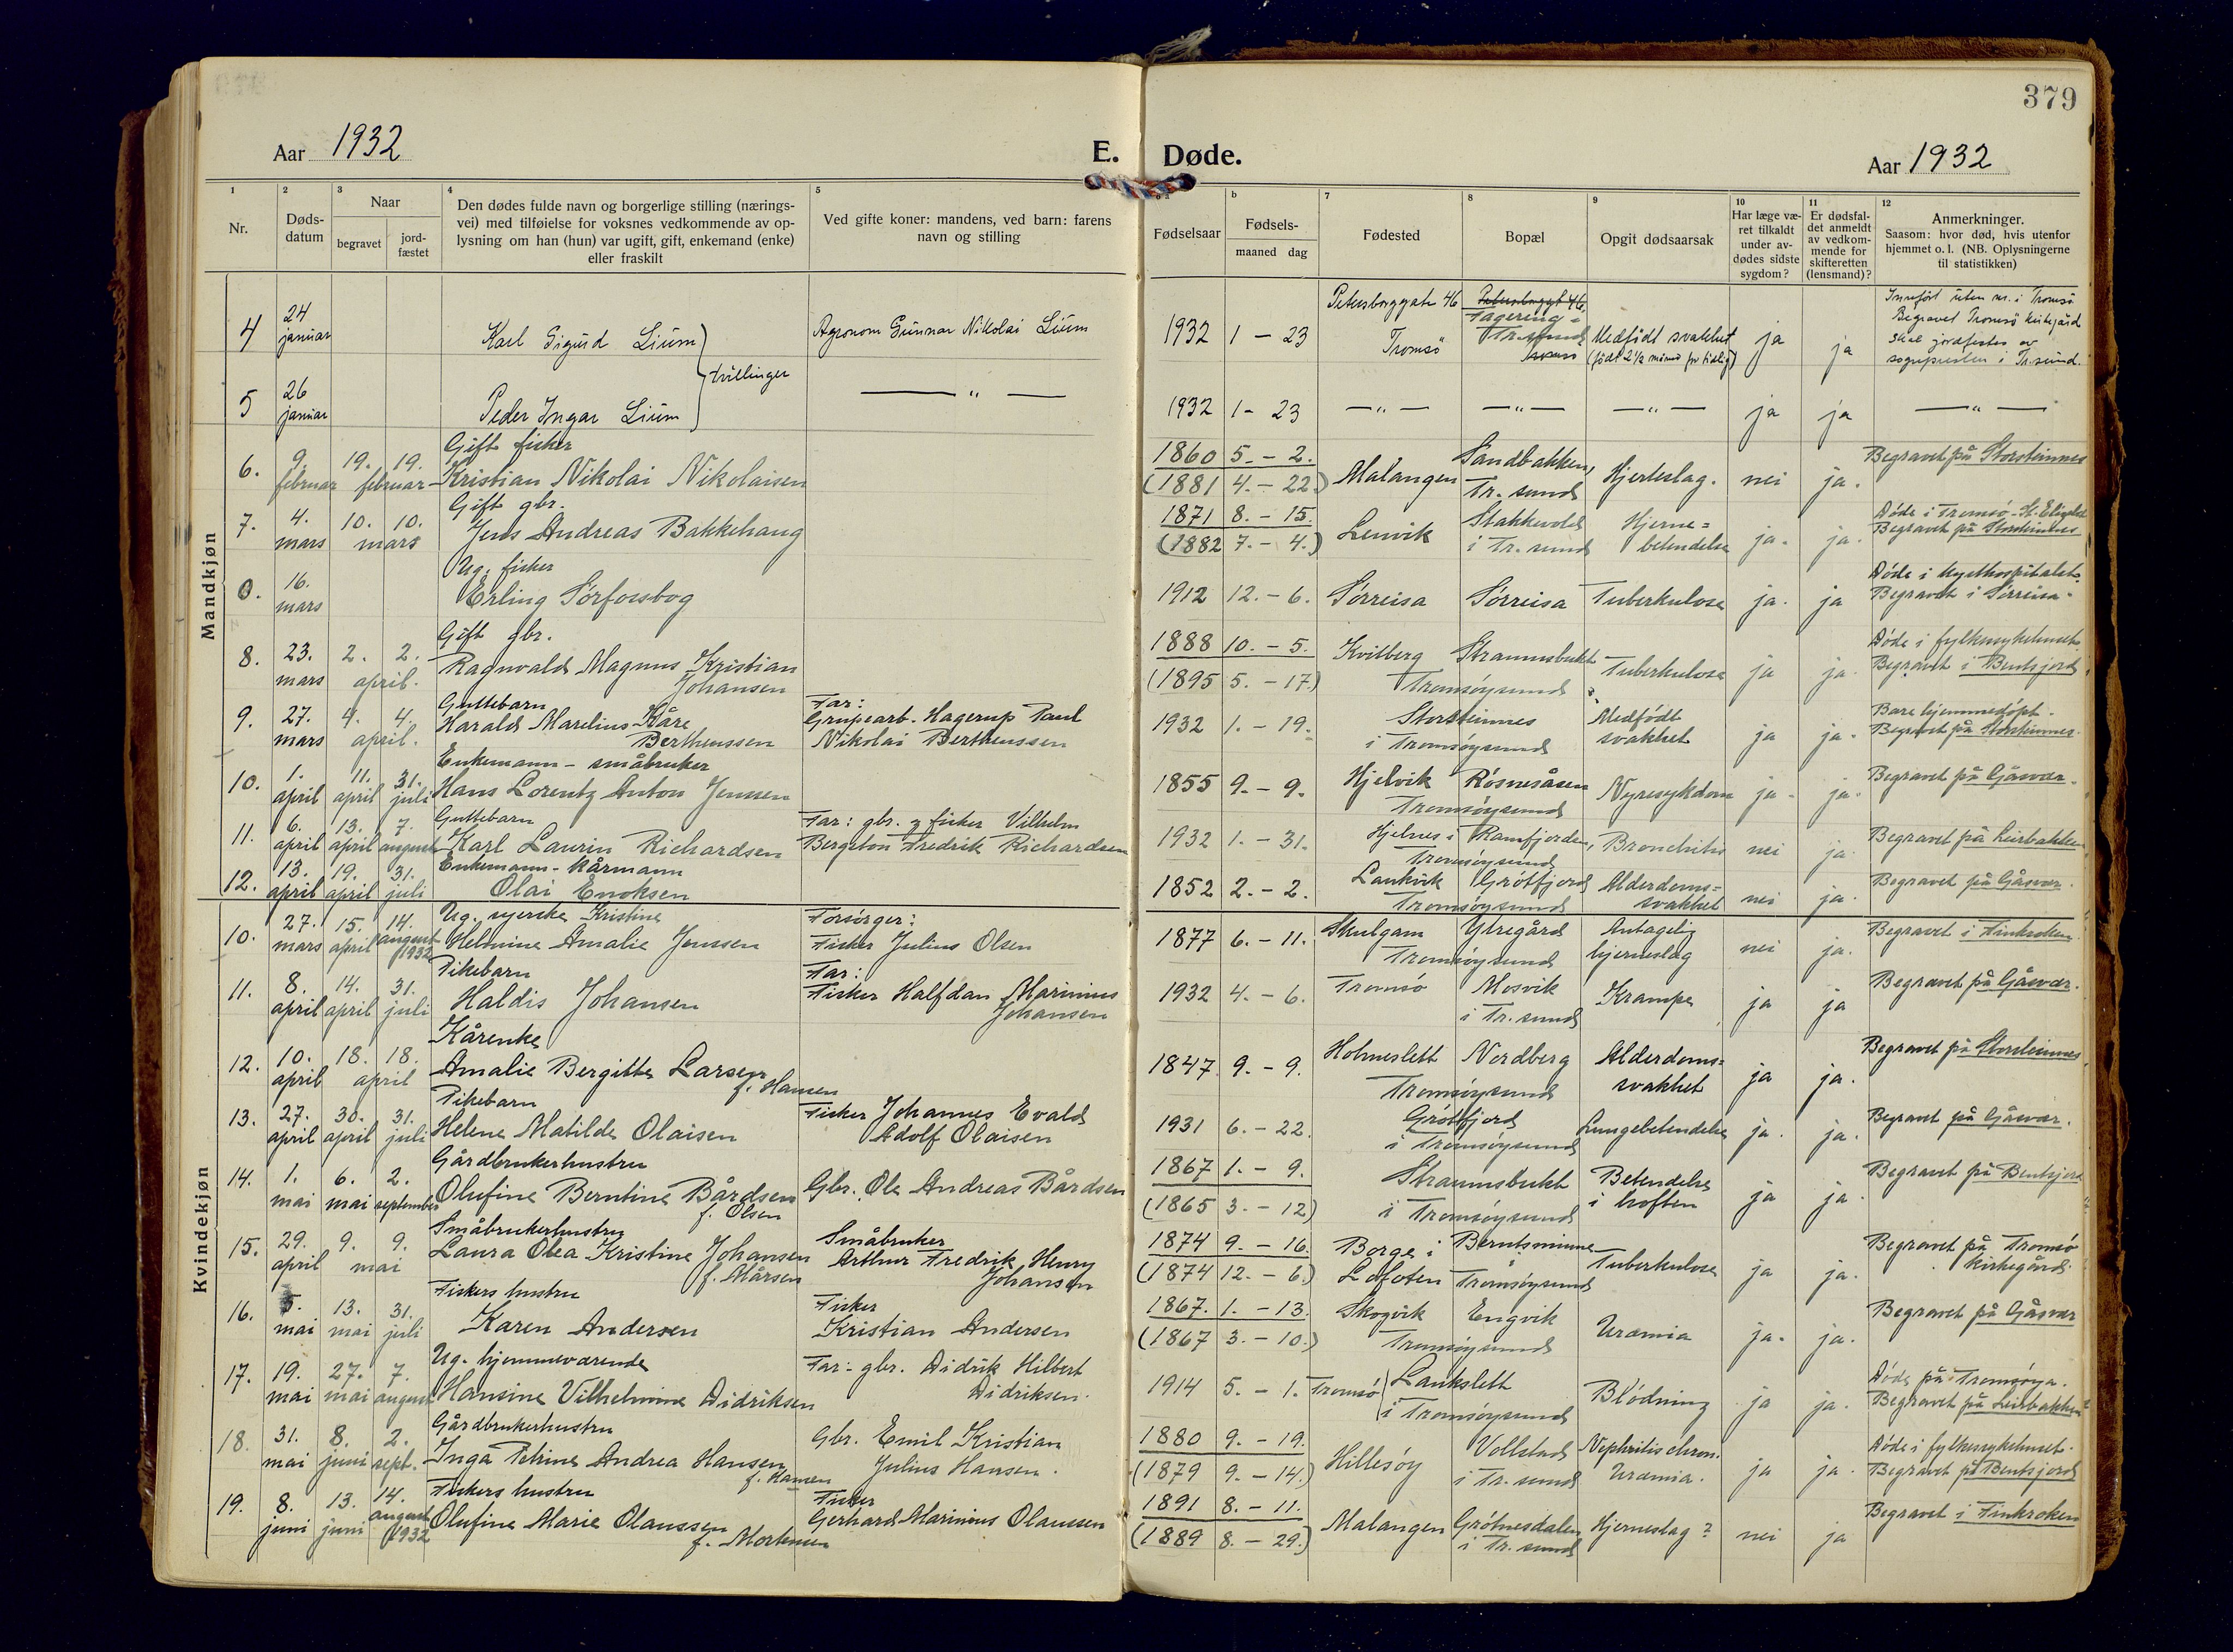 379
Aar 1932
E. Døde.
Aar 1932
1 2 3 4 5
Nr.
Døds-
datum
Naar
begravet
jord-
fæstet
Den dødes fulde navn og borgerlige stilling (nærings-
vei) med tilføielse for voksnes vedkommende av op-
lysning om han (hun) var ugift, gift, enkemand (enke)
eller fraskilt
Ved gifte koner: mandens, ved barn: farens
navn og stilling
b 7 8 9 10 11 12
Fødselsaar
Fødsels-
maaned dag
Fødested
Bopæl
Opgit dødsaarsak
Har læge væ-
ret tilkaldt
under av-
dødes sidste
sygdom?
Er dødsfal-
det anmeldt
av vedkom-
mende for
skifteretten
(lensmand)?
Anmerkninger.
Saasom: hvor død, hvis utenfor
hjemmet o. l. (NB. Oplysningerne
til statistikken)
Mandkjøn
4 24 januar Karl Sigurd Lium Agronom Gunnar Nikolai Lium
1932 1 - 23 Petersborggate 46 Tromsö Medfödt svakhet (födt 2 1/2 måned for tidlig) ja ja
Innfört uten nr. i Tromsö
Begravet Tromsö kirkegård
skal jordfestes av
sognepresten i Tr.sund.
tvillinger
5 26 januar Peder Ingar Lium — " —
1932 1 - 23 — " — — " — — " — ja ja — " —
6. 9. februar 19. 19. februar Gift fisker
Kristian Nikolai Nikolaisen
1860 5. - 2. (1881 4. - 22.) Malangen Sandbakken, Tr. sund Hjerteslag. nei ja. Begravet på Storsteinnes
7. 4. mars 10. 10. mars Gift gbr.
Jens Andreas Bakkehaug
1871 8. - 15. (1882 7. - 4.) Lenvik Stakkevold i Tr. sund Hjerne=betendelse ja. ja. Døde i Tromsø - St. Elisabet
Begravet på Storsteinnes
0. 16. mars Ug. fisker
Erling Sørfossbog
1912 12. - 6. Sørreisa Sørreisa Tuberkulose ja. ja Døde i kysthospitalet.
Begravet i Sørreisa.
8. 23. mars 2. 2. april. Gift gbr.
Ragnvald Magnus Kristian
Johansen
1888 10. - 5. (1895 5. - 17.) Kvitberg Straumsbukt Tromsøysund Tuberkulose ja ja. Døde i fylkessykehuset.
Begravet i Bentsjord
9. 27. mars 4. 4. april. Guttebarn
Harald Marelius Kåre
Bertheussen
Far:
Grupearb. Hagerup Paul
Nikolai Bertheussen
1932 1. - 19. Storsteinnes i Tromsøysund Medfødt svakhet ja ja. Bare hjemmedøpt.
Begravet på Storsteinnes.
10. 1. april 11. april 31. juli Enkemann - småbruker
Hans Lorentz Anton Jenssen
1855 9. - 9. Hjelvik Røsnesåsen Tromsøysund Nyresykdom ja. ja. Begravet på Gåsvær.
11. 6. april 13. april 7. august Guttebarn
Karl Laurin Richardsen
Far: gbr. og fisker Vilhelm
Bergeton Fredrik Richardsen
1932 1. - 31. Hjelnes i Ramfjorden, Tromsøysund Bronchitis nei ja. Begravet på Leirbakken
12. 13. april 19. april 31. juli Enkemann - kårmann
Olai Enoksen
1852 2. - 2. Laukvik Grøtfjord Tromsøysund Alderdoms=svakhet nei ja. Begravet på Gåsvær.
Kvindekjøn
10. 27. mars 15. april 14. august 1932 Ug. syerske Kristine
Helmine Amalie Jenssen
Forsørger:
Fisker Julius Olsen
1877 6. - 11. Skulgam Ytregård Tromsøysund Antagelig hjerneslag nei ja. Begravet i Finkroken.
11. 8. april 14. april 31. juli Pikebarn
Haldis Johansen
Far:
Fisker Halfdan Marinius
Johansen
1932 4. - 6. Tromsø Mosvik i Tr. sund Krampe ja ja Begravet på Gåsvær.
12. 10. april 18. 18. april Kårenke
Amalie Bergitte Larsen
f. Hansen
1847 9. - 9. Holmeslett Nordberg Tromsøysund Alderdoms=svakhet ja ja. Begravet på Storsteinnes
13. 27. april 30. april 31. juli Pikebarn
Helene Matilde Olaisen
Fisker Johannes Evald
Adolf Olaisen
1931 6. - 22. Grøtfjord i Tromsøysund Lungebetendelse ja. ja. Begravet på Gåsvær.
14. 1. mai 6. mai 2. september Gårdbrukerhustru
Olufine Berntine Bårdsen
f. Olsen
Gbr. Ole Andreas Bårdsen
1867 1. - 9. (1865 3. - 12) Straumsbukt i Tromsøysund Betendelse i hoften ja ja. Begravet på Bentsjord
15. 29. april 9. 9. mai Småbrukerhustru
Laura Olea Kristine Johansen
f. Mårsen
Småbruker
Arthur Fredrik Henry
Johansen
1874 9. - 16. (1874 12. - 6.) Borge i Lofoten Berntsminne Tromsøysund Tuberkulose ja ja. Begravet på Tromsø
kirkegård.
16. 5. mai 13. mai 31. juli Fiskers hustru
Karen Andersen
Fisker
Kristian Andersen
1867. 1. - 13. (1867 3. - 10.) Skogvik Engvik Tromsøysund Uræmia ja. ja. Begravet på Gåsvær
17. 19. mai 27. mai 7. august Ug. hjemmeværende
Hansine Vilhelmine Didriksen
Far: gbr. Didrik Hilbert
Didriksen.
1914 5. - 1. Tromsø Laukslett i Tromsøysund Blødning ja ja. Døde på Tromsøya.
Begravet på Leirbakken
18. 31. mai 8. juni 2. sept. Gårdbrukerhustru
Inga Petrine Andrea Hansen
f. Hansen
Gbr. Emil Kristian
Julius Hansen.
1880 9. - 19. (1879 9. - 14.) Hillesøy Vollstad i Tr. sund Nephritis chron. Uræmia. ja ja. Døde i fylkessykehuset.
Begravet på Bentsjord
19. 8. juni 13. juni 14. august 1932 Fiskers hustru
Olufine Marie Olaussen
f. Mortensen
Fisker
Gerhard Marinius Olaussen
1891 8. - 11. (1889 8. - 29.) Malangen Grøtnesdalen i Tr. sund Hjerneslag? nei ja Begravet i Finkroken